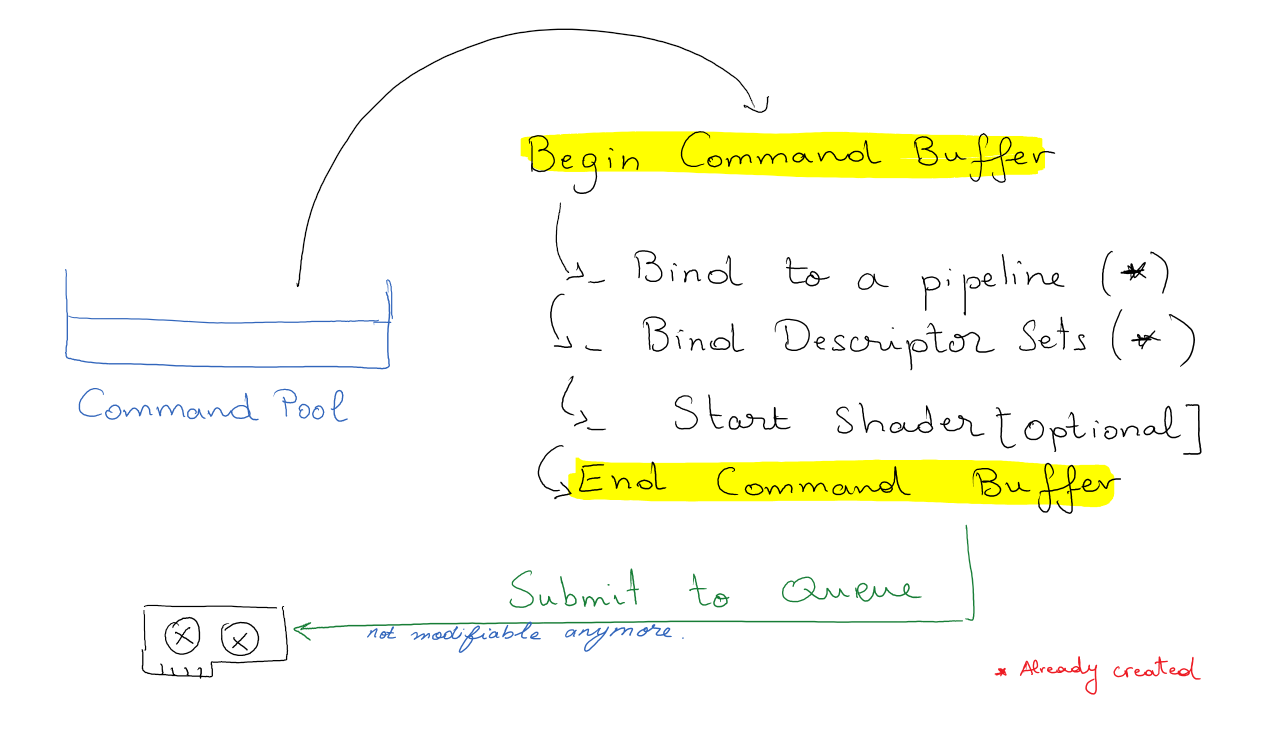 Begin Command Buffer
- Bind to a pipeline (*)
- Bind Descriptor Sets (*)
Command Pool
- Start Shader [optional]
End Command Buffer
Submit to Queue
not modifiable anymore.
* Already created